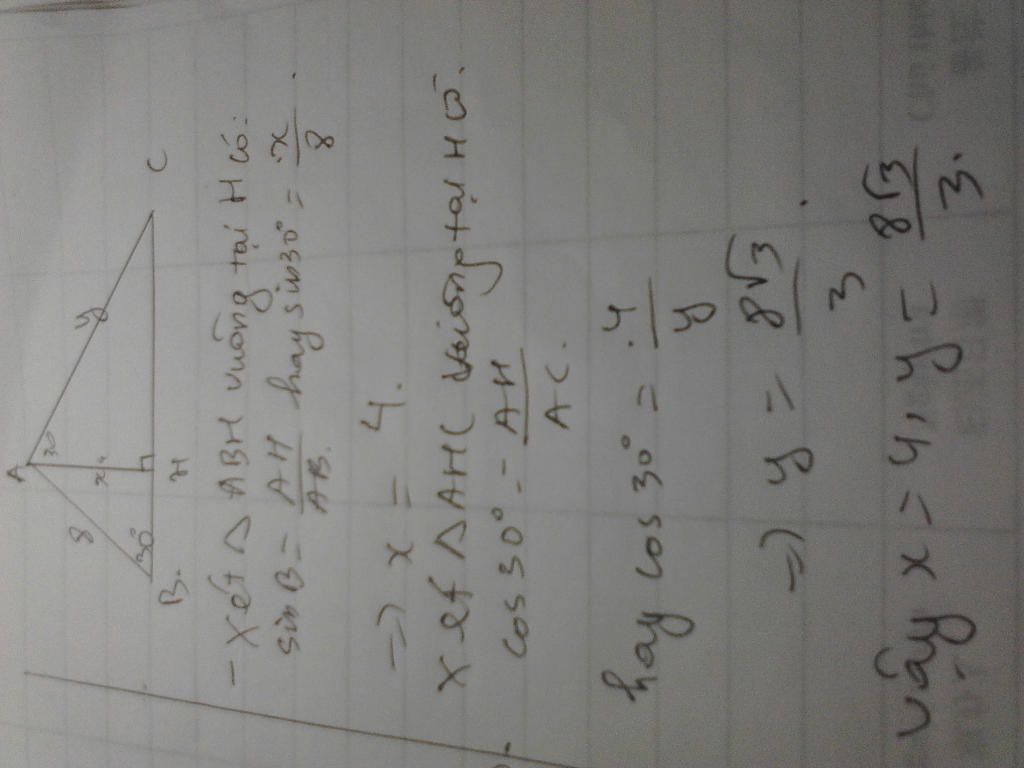 A
30
8
x
y
30°
B.
H
C
- xét Δ ABH vuông tại H có:
sin B = AH/AB. hay sin30° = x/8.
=> x = 4.
xét Δ AHC vuông tại H có.
cos 30° - AH/AC.
hay cos 30° = 4/y
=> y = 8√3/3.
vậy x = 4, y = 8√3/3.